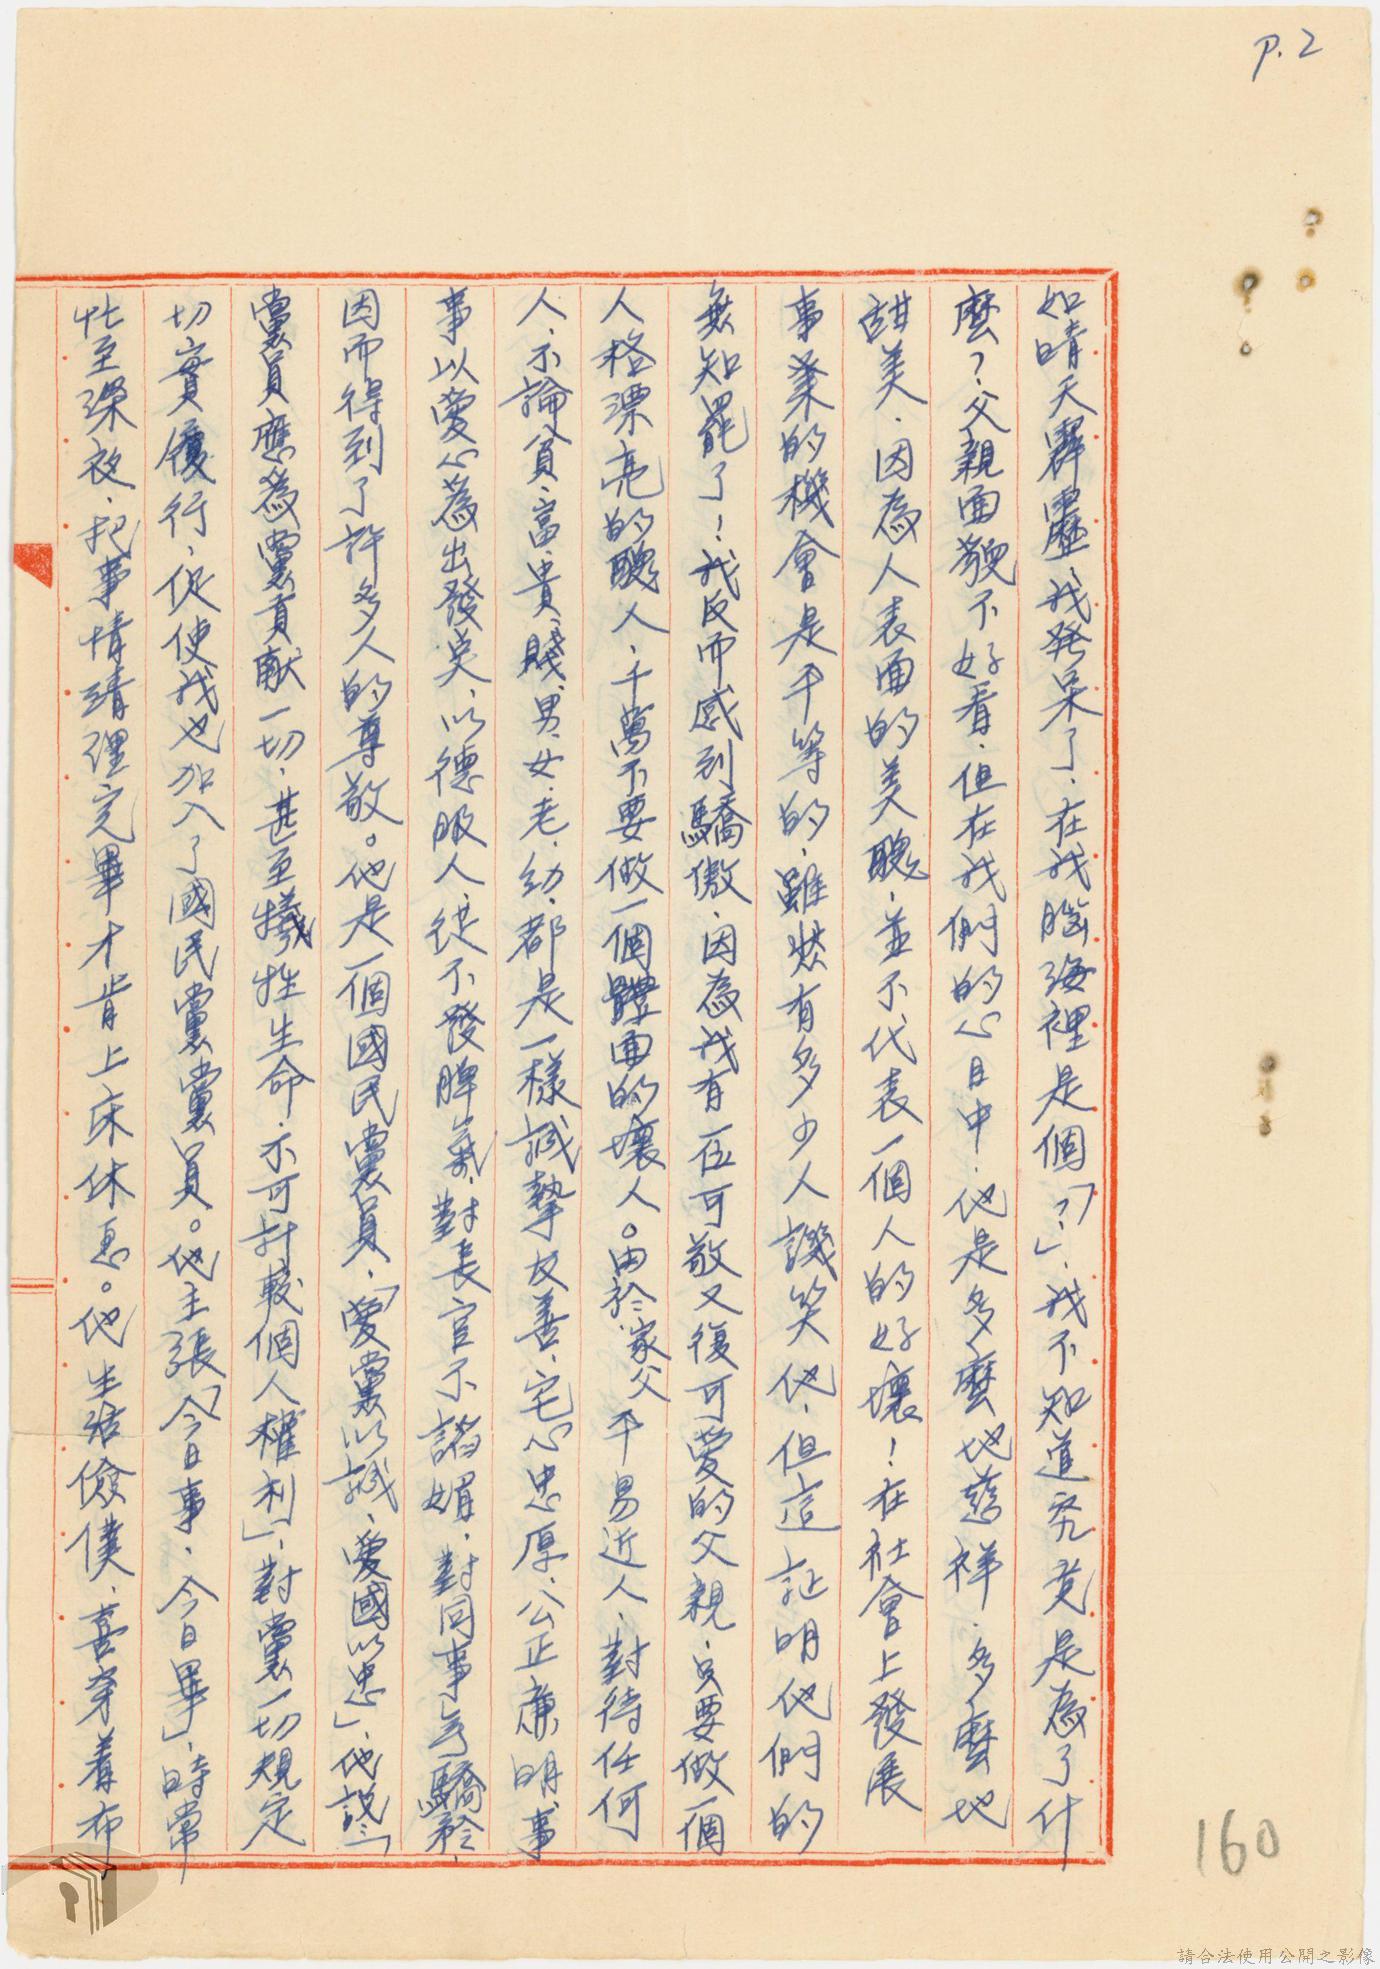 P.2
如晴天霹靂，我発呆了，在我腦海裡是個「？」，我不知道究竟是為了什
麼？父親面貌不好看，但在我們的心目中，他是多麼地慈祥，多麼地
甜美，因為人表面的美醜，並不代表一個人的好壞！在社會上發展
事業的機會是平等的，雖然有多少人譏笑他，但這証明他們的
無知罷了！我反而感到驕傲，因為我有一位可敬又復可愛的父親，只要做一個
人格漂亮的醜人，千萬不要做一個體面的壞人。由於家父平易近人，對待任何
人，不論貧、富、貴、賤、男、女、老、幼，都是一樣誠摯友善，宅心忠厚，公正廉明，事
事以愛心為出發奌，以德服人，從不發脾氣，對長官不諂媚，對同事亏驕矜，
因而得到了許多人的尊敬。他是一個國民黨黨員，「愛黨以誠，愛國以忠」，他說：「
黨員應為黨貢献一切，甚至犧牲生命，不可計較個人權利」，對黨一切規定
切實履行，促使我也加入了國民黨黨員。他主張「今日事，今日畢」，時常
忙至深夜，把事情清理完畢才肯上床休息。他生活儉僕，喜穿着布
160
請合法使用公開之影像